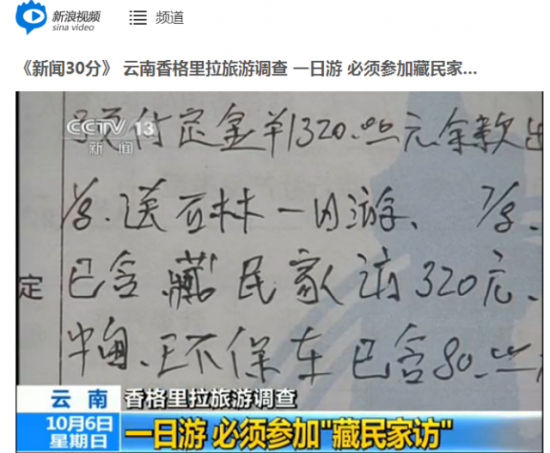 新浪视频
sina video
频道
《新闻30分》 云南香格里拉旅游调查 一日游 必须参加藏民家...
CCTV 13
新闻
预付定金¥1320.00元余款
1/8.送石林一日游、7/8.
定 已含藏民家访320元、
中甸、环保车已含80.00
云南 香格里拉旅游调查
10月6日 星期日
一日游 必须参加"藏民家访"